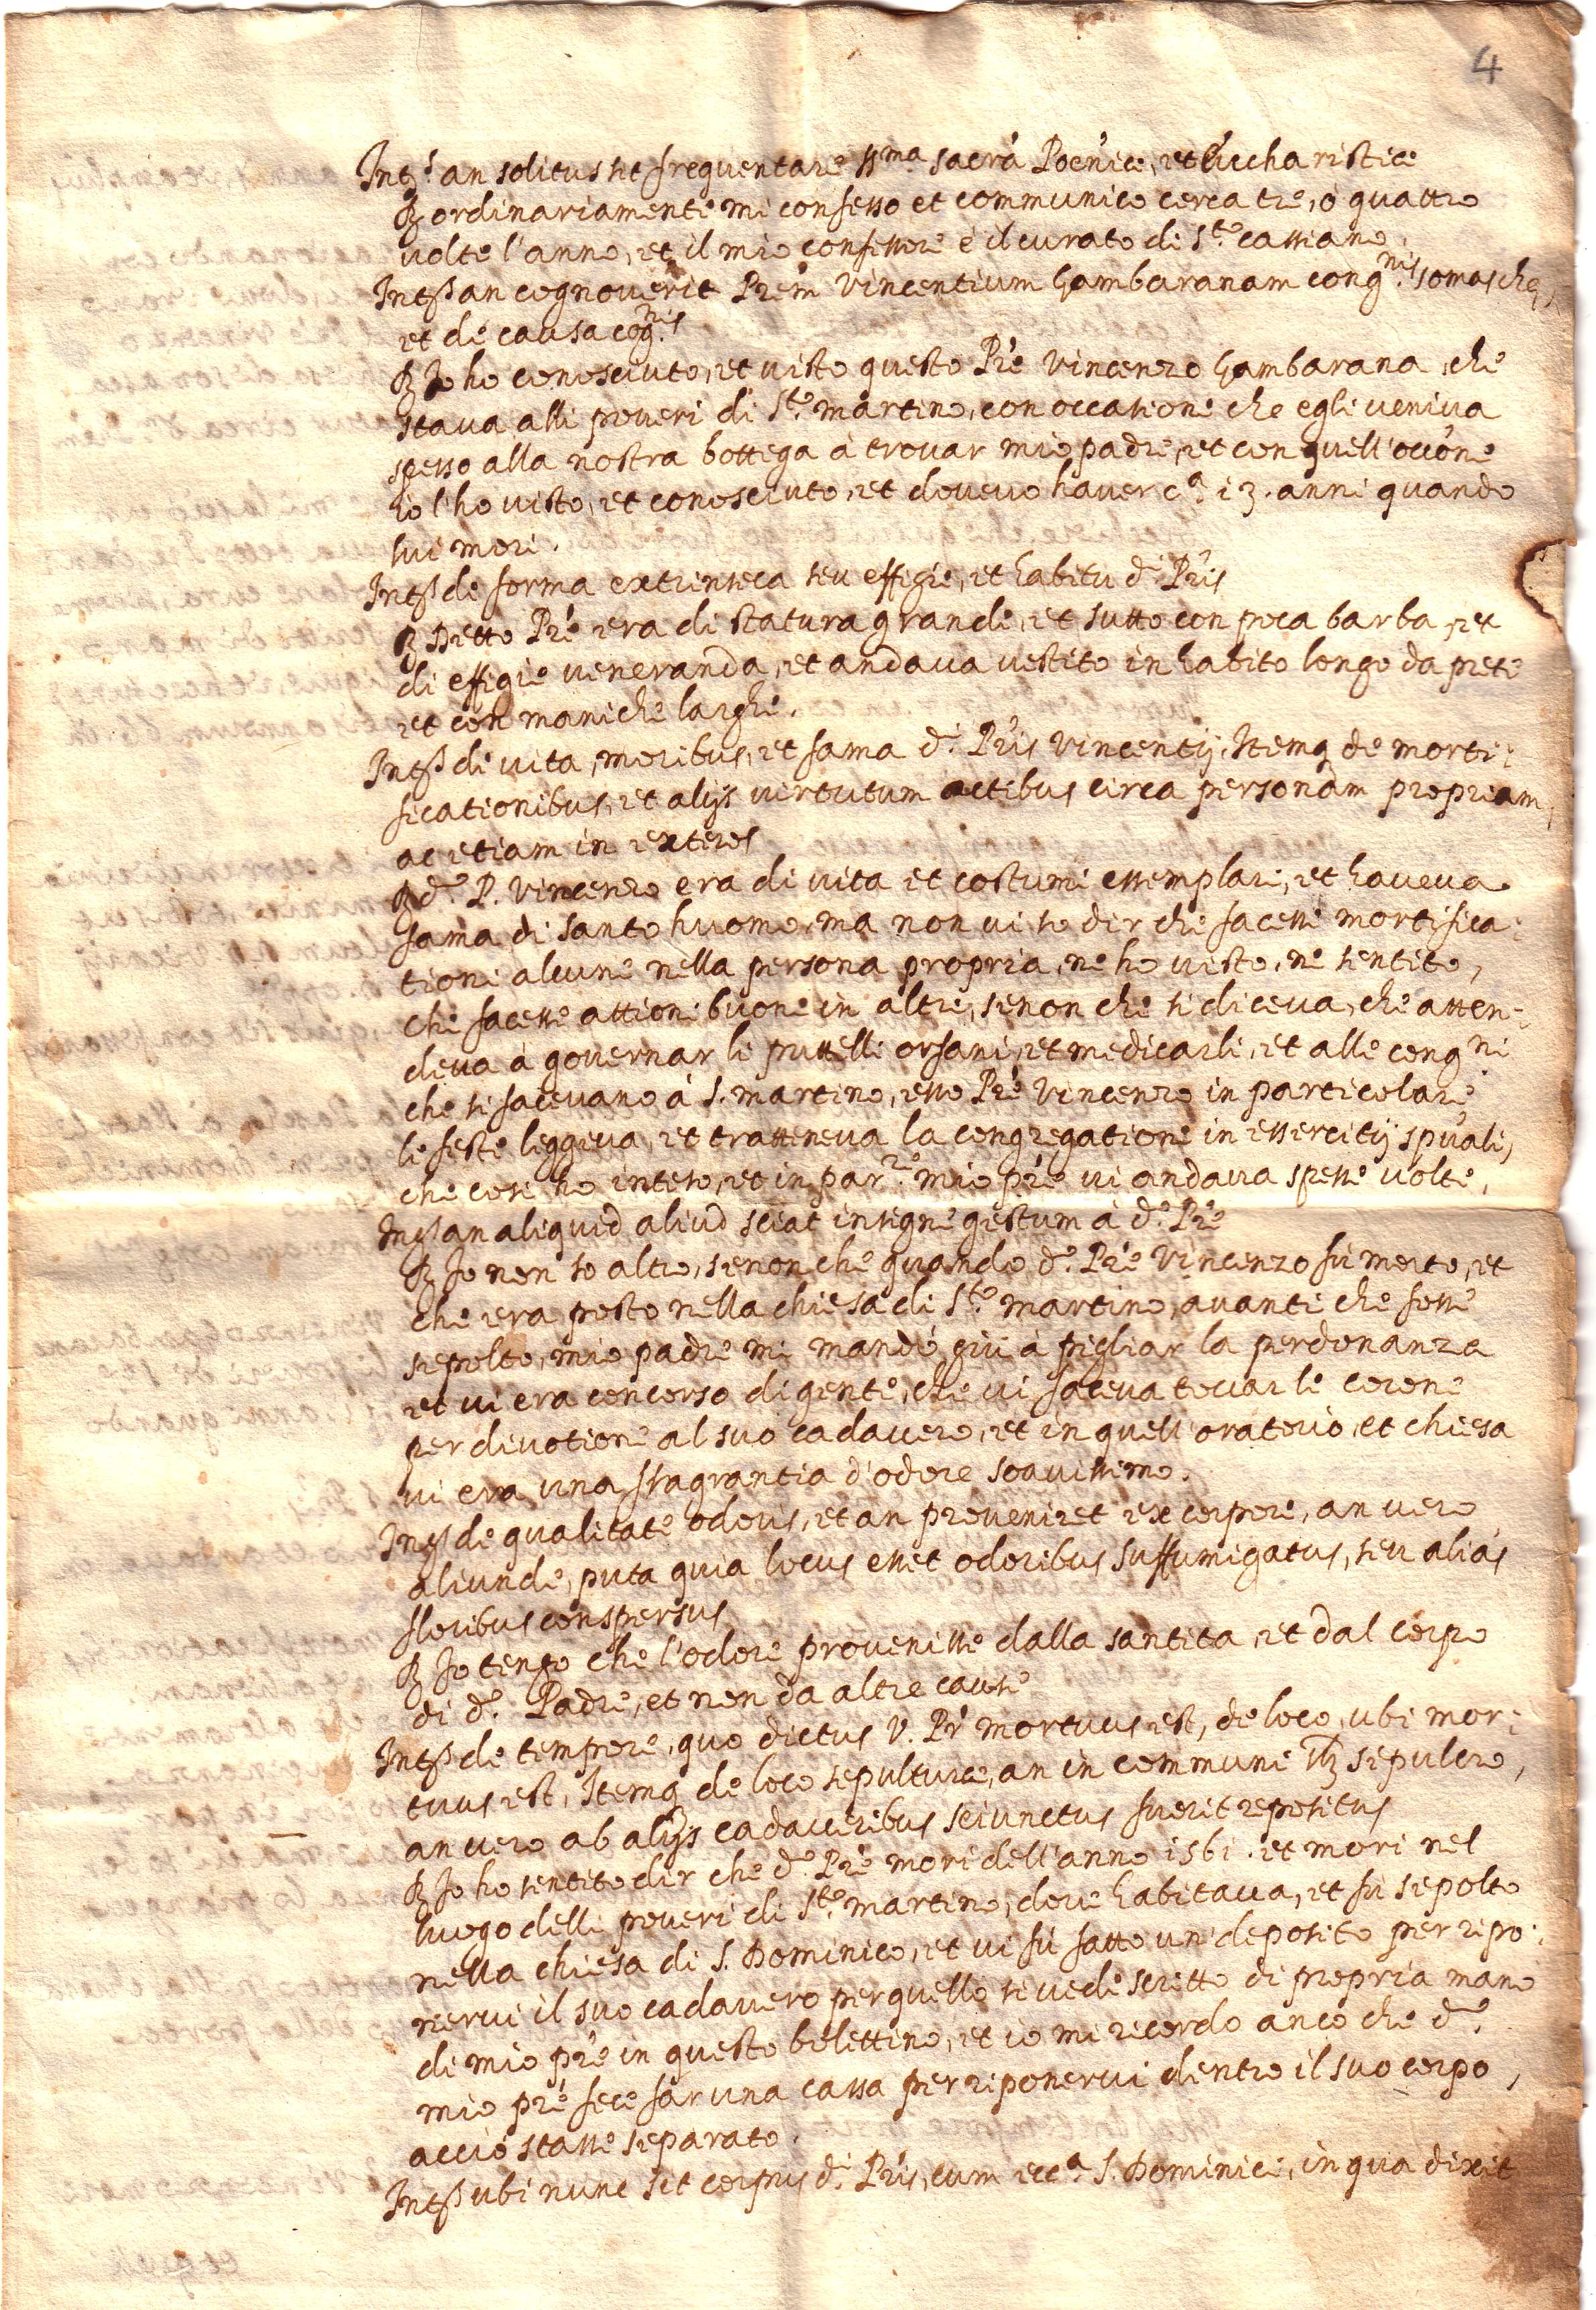 4
Int.s an solitus sit frequentare ss.ma sacra Poen.ce, et Euccharistice
R. ordinariamente mi confesso et communico cerca tre, ò quattro
volte l'anno, et il mio confessore è il curato di S.to Cassiano.
Int.s an cognoverit Prēm Vincentium Gambaranam cong.nis somaschę,
et de causa cog.nis
R. Io ho conosciuto, et visto questo Prē Vincenzo Gambarana, che
stava alli poveri di S.to Martino, con occasione che egli veniva
spesso alla nostra bottega à trovar mio padre, et con quell'occōne
io l'ho visto, et conosciuto, et dovevo haver c.a 13. anni quando
lui morì.
Int.s de forma extrinseca seu effigie, et habitu d.i Prīs
R. Detto Prē era di statura grande, et sutto con poca barba, et
di effigie veneranda, et andava vestito in habito longo da prete
et con maniche larghe.
Int.s de vita, moribus, et fama d.i Prīs Vincentij, Itemq de morti:
ficationibus, et alijs virtutum actibus circa personam propriam,
ac etiam in exteros
R. d.o P. Vincenzo era di vita et costumi essemplari, et haveva
fama di santo huomo, ma non vi so dir che facesse mortifica:
tioni alcune nella persona propria, ne ho visto, ne sentito,
che facesse attioni buone in altri, senon che si diceva, che atten:
deva à governar li puttelli orfani, et medicarli, et alle cong.ni
che si facevano à S. Martino, esso Prē Vincenzo in particolare
le feste leggeva, et tratteneva la congregatione in essercitij spūali,
che così ho inteso, et in par.re mio prē vi andava spesse volte.
Int.s an aliquid aliud sciat insigne gestum à d.o Prē
R. Io non so altro, senon che quando d.o Prē Vincenzo fù morto, et
che era posto nella chiesa di S.to Martino, avanti che fosse
sepolto, mio padre mi mandò giù à pigliar la perdonanza
et vi era concorso di gente, che vi faceva toccar le corone
per divotione al suo cadavero, et in quell'oratorio, et chiesa
vi era una fragrantia d'odore soavissimo.
Int.s de qualitate odoris, et an proveniret ex corpore, an vero
aliunde, puta quia locus esset odoribus suffumigatus, seu aliàs
floribus conspersus
R. Io tengo che l'odore provenisse dalla santità, et dal corpo
di d.o Padre, et non da altre cause
Int.s de tempore, quo dictus V. Pr mortuus est, de loco, ubi mor:
tuus est, Itemq de loco sepulture, an in communi sepulcro,
an vero ab alijs cadaveribus seiunctus fuerit repositus
R. Io ho sentito dir che d.o Prē morì dell'anno 1561. et morì nel
luogo delli poveri di S.to Martino, dove habitava, et fù sepolto
nella chiesa di S. Dominico, et vi fù fatto un deposito per ripo:
nervi il suo cadavero per quello si vede scritto di propria mano
di mio prē in questo bolettino, et io mi ricordo anco che d.o
mio prē fece far una cassa per riponervi dentro il suo corpo,
acciò stasse separato.
Int.s ubi nunc sit corpus d.i Prīs, cum ecc.a S. Dominici, in qua dixit